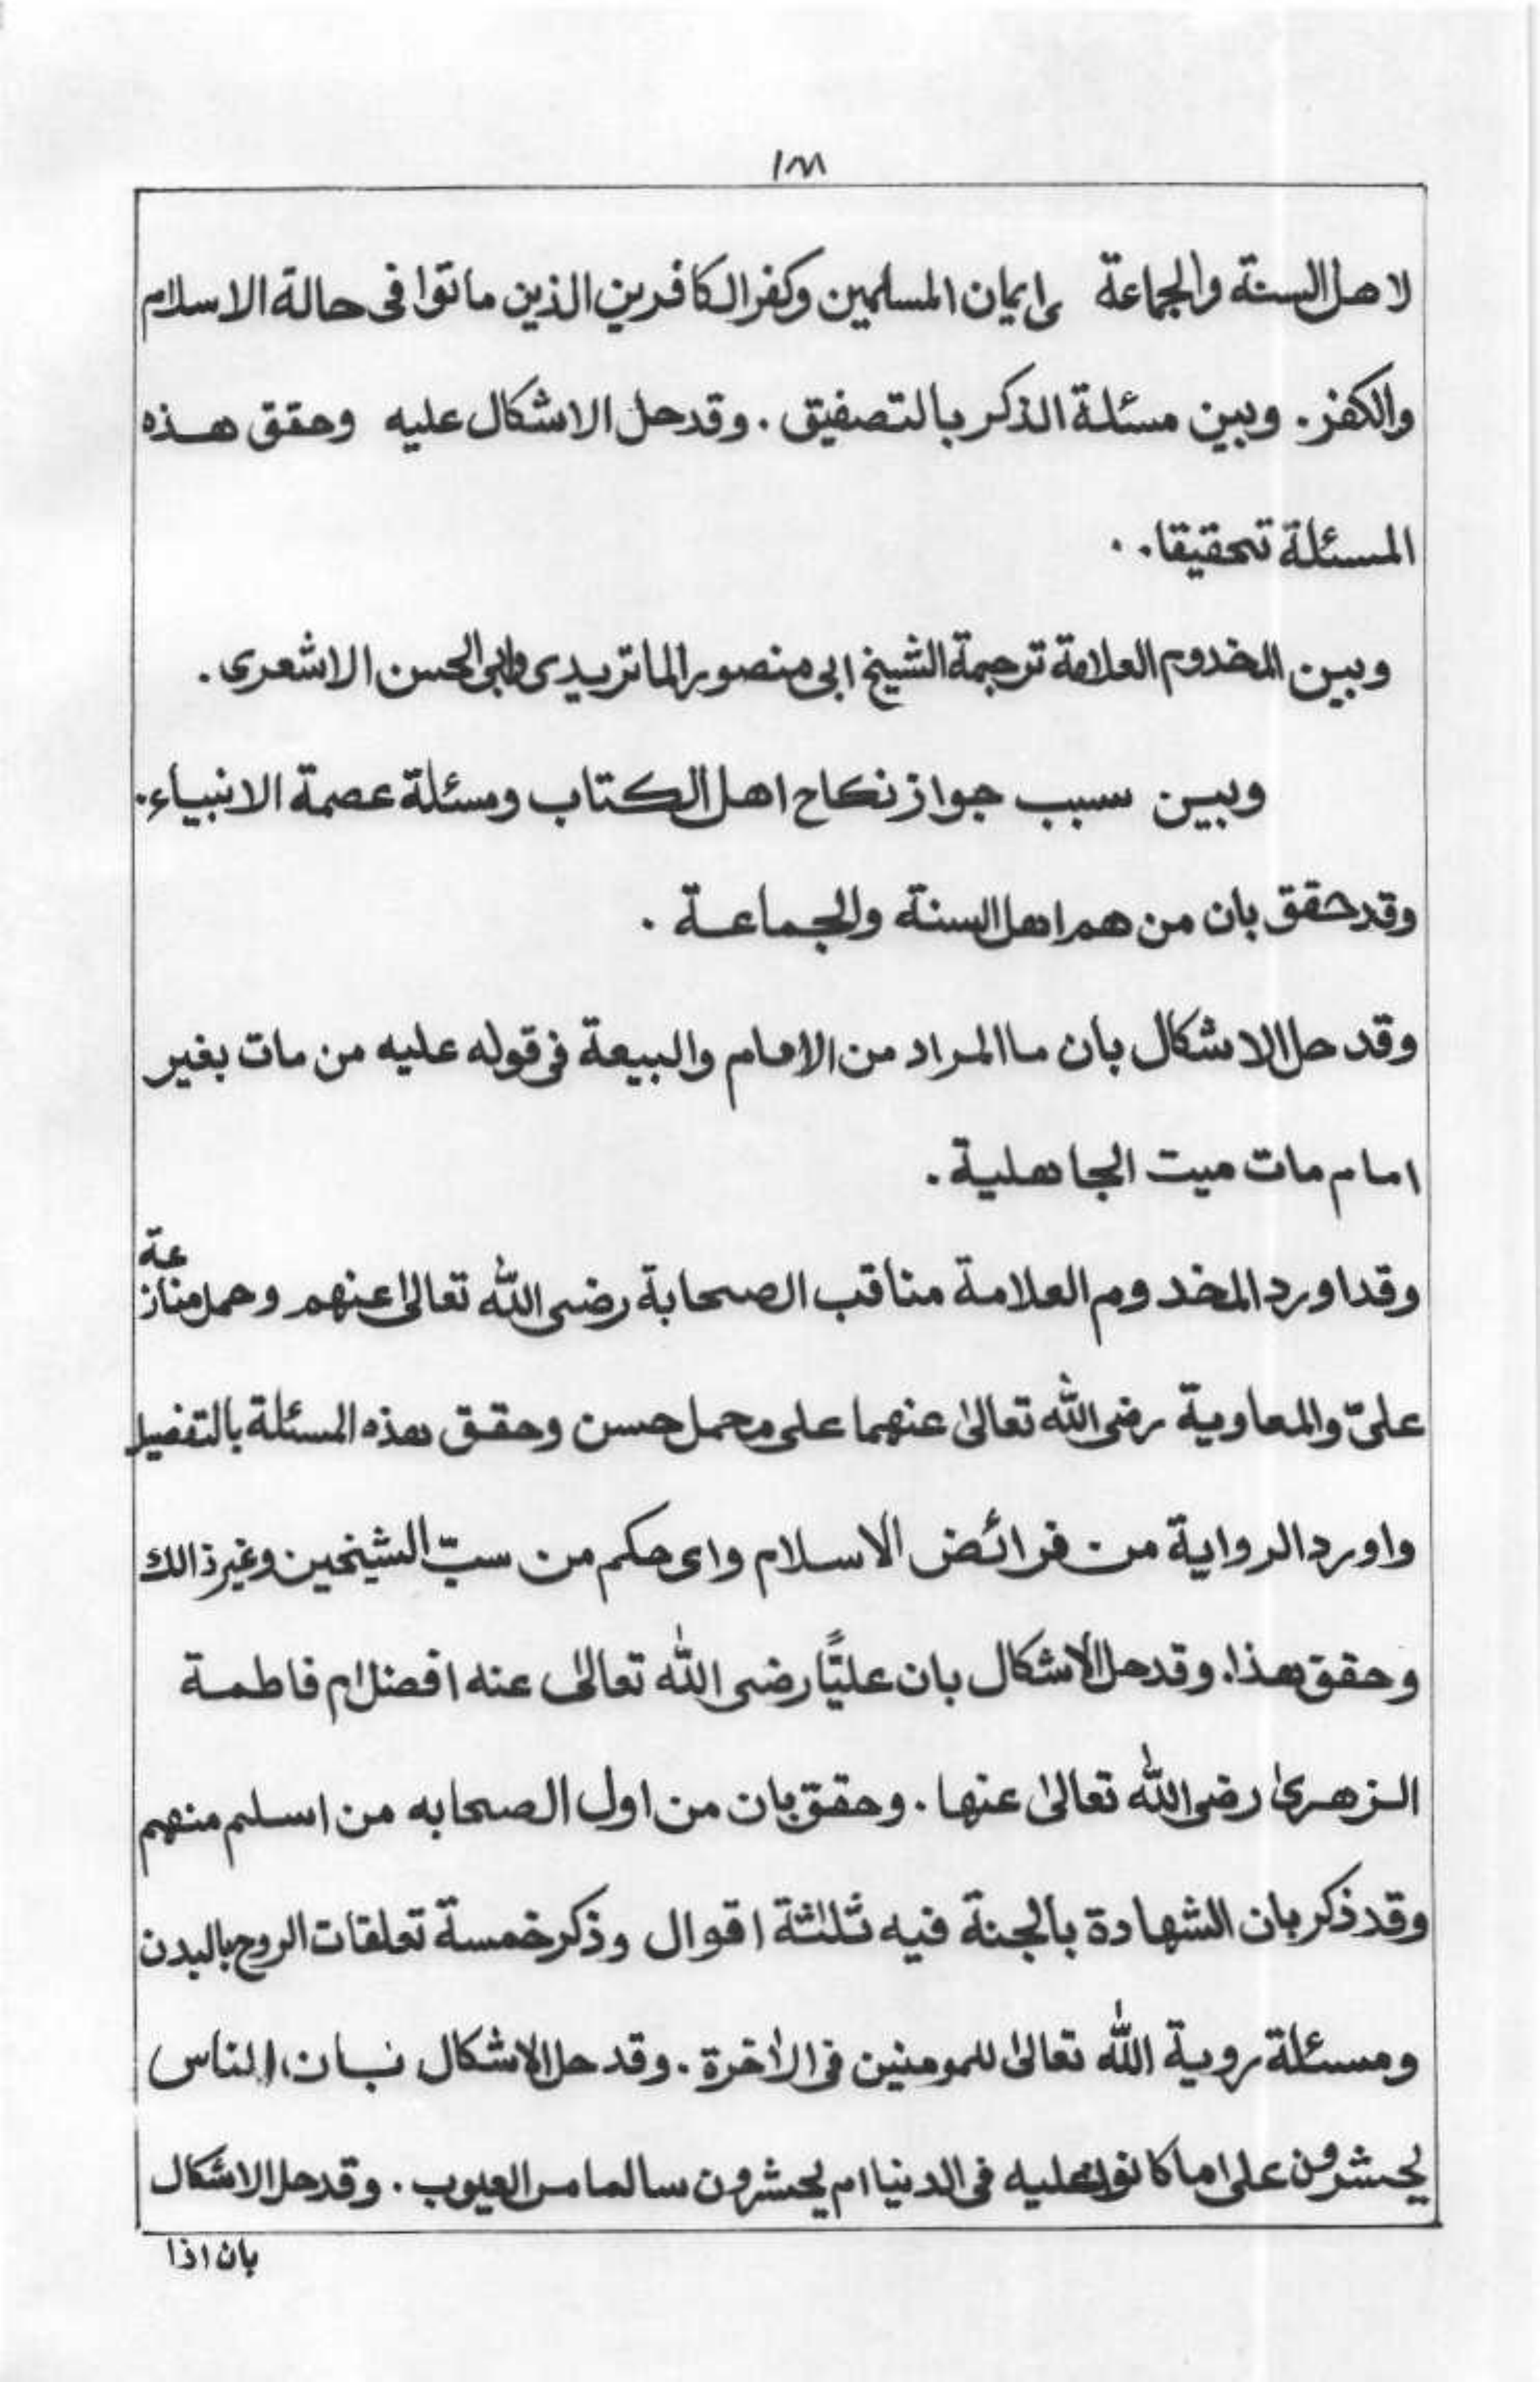 لاهل السنة والجماعة ى ايمان المسلمين وكفر الكافرين الذين ماتوا فى حالة الاسلام
والكفر. وبين مسئلة الذكر بالتصفيق. وقد حل الاشكال عليه وحقق هذه
المسئلة تحقيقا..
وبين المخدوم العلامة ترجمة الشيخ ابى منصور الماتريدى وابى الحسن الاشعرى.
وبين سبب جواز نكاح اهل الكتاب ومسئلة عصمة الانبياء.
وقد حقق بان من هم اهل السنة والجماعة.
وقد حل الاشكال بان ما المراد من الامام والبيعة فى قوله عليه من مات بغير
امام مات ميت الجاهلية.
وقد اورد المخدوم العلامة مناقب الصحابة رضى الله تعالىٰ عنهم وحمل منازعة
علىّ والمعاوية رضى الله تعالىٰ عنهما على محمل حسن وحقق هذه المسئلة بالتفصيل
واورد الرواية من فرائض الاسلام واى حكم من سبّ الشيخين وغير ذالك
وحقق هذا. وقد حل الاشكال بان عليًّا رضى الله تعالىٰ عنه افضل ام فاطمة
الزهرىٰ رضى الله تعالىٰ عنها. وحقق بان من اول الصحابه من اسلم منهم
وقد ذكر بان الشهادة بالجنة فيه ثلٰثة اقوال وذكر خمسة تعلقات الروح بالبدن
ومسئلة روية الله تعالىٰ للمومنين فى الاٰخرة. وقد حل الاشكال بان الناس
يحشرون على ما كانوا عليه فى الدنيا ام يحشرون سالما من العيوب. وقد حل الاشكال
بان اذا